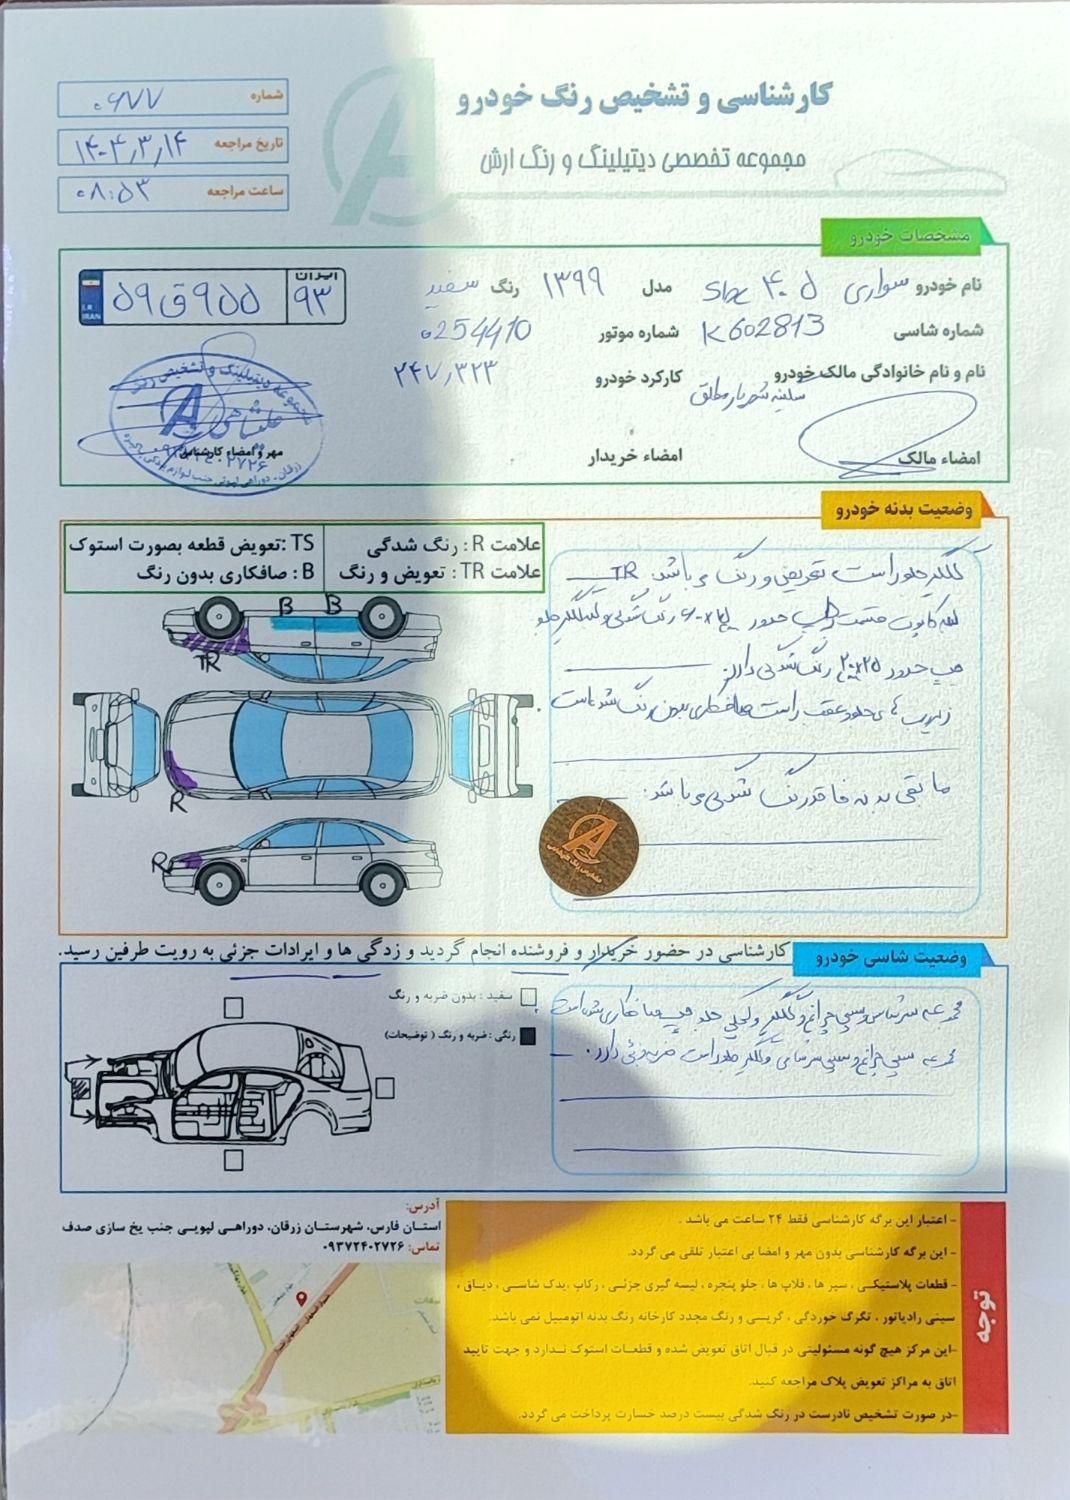 کارشناسی و تشخیص رنگ خودرو
مجموعه تخصصی دیتیلینگ و رنگ ارش
شماره ۰۶۷۷
تاریخ مراجعه ۱۴۰۴٫۳٫۱۴
ساعت مراجعه ۰۸:۵۳
مشخصات خودرو
نام خودرو سواری ۴۰۵ slx مدل ۱۳۹۹ رنگ سفید
شماره شاسی K602813 شماره موتور 0254410
نام و نام خانوادگی مالک خودرو کارکرد خودرو ۲۴۷٫۳۲۳
امضاء مالک امضاء خریدار
ایران
۵۹ق۹۵۵ ۹۳
I.R.
IRAN
مجموعه دیتیلینگ و تشخیص رنگ
مهر و امضاء کارشناس
وضعیت بدنه خودرو
علامت R : رنگ شدگی
TS :تعویض قطعه بصورت استوک
علامت TR : تعویض و رنگ
B : صافکاری بدون رنگ
B B
TR
R
R
گلگیر جلو راست تعویض و رنگ می باشد. TR
رنگ شدگی و گلگیر جلو
چپ حدود ۲۵×۲۰ رنگ شدگی دارد.
جلو عقب راست صافکاری بدون رنگ شده است.
مابقی بدنه فاقد رنگ شدگی می باشد.
کارشناسی در حضور خریدار و فروشنده انجام گردید و زدگی ها و ایرادات جزئی به رویت طرفین رسید.
وضعیت شاسی خودرو
سفید : بدون ضربه و رنگ
رنگی : ضربه و رنگ ( توضیحات)
جلو چپ صافکاری شده است
مجموعه سینی چراغ و سینی و گلگیر جلو راست دارد.
آدرس:
استان فارس، شهرستان زرقان، دوراهی لپویی جنب یخ سازی صدف
تماس: ۰۹۳۷۲۴۰۲۷۲۶
توجه
- اعتبار این برگه کارشناسی فقط ۲۴ ساعت می باشد .
- این برگه کارشناسی بدون مهر و امضا بی اعتبار تلقی می گردد.
- قطعات پلاستیکی ، سپر ها ، فلاپ ها ، جلو پنجره ، لیسه گیری جزئی ، رکاب ،یدک شاسی ، دیاق ،
سینی رادیاتور ، تگرگ خوردگی ، گریسی و رنگ مجدد کارخانه رنگ بدنه اتومبیل نمی باشد.
-این مرکز هیچ گونه مسئولیتی در قبال اتاق تعویض شده و قطعات استوک ندارد و جهت تایید
اتاق به مراکز تعویض پلاک مراجعه کنید.
-در صورت تشخیص نادرست در رنگ شدگی بیست درصد خسارت پرداخت می گردد.